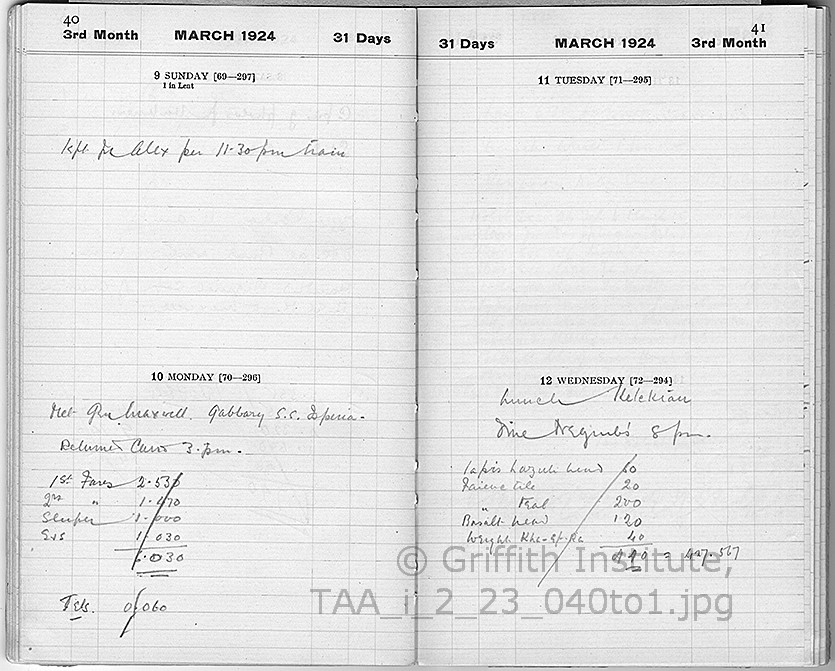 40
3rd Month MARCH 1924 31 Days
9 SUNDAY [69—297]
1 in Lent
left for Alex per 11.30 pm train
10 MONDAY [70—296]
Met Gen Maxwell. Gabbary S.S. Esperia.
Returned Cairo 3.pm.
1st Fares 2.530
2nd " 1.470
Sleeper 1.000
Exs 1.030
6.030
Tels. 0.060
41
31 Days MARCH 1924 3rd Month
11 TUESDAY [71—295]
12 WEDNESDAY [72—294]
Lunch Kelekian
Dine 8 pm.
lapis lazuli head 60
Faience tile 20
" 200
Basalt head 120
Weight Kha-ef-Ra 40
440 = 427.567
© Griffith Institute,
TAA_i_2_23_040to1.jpg